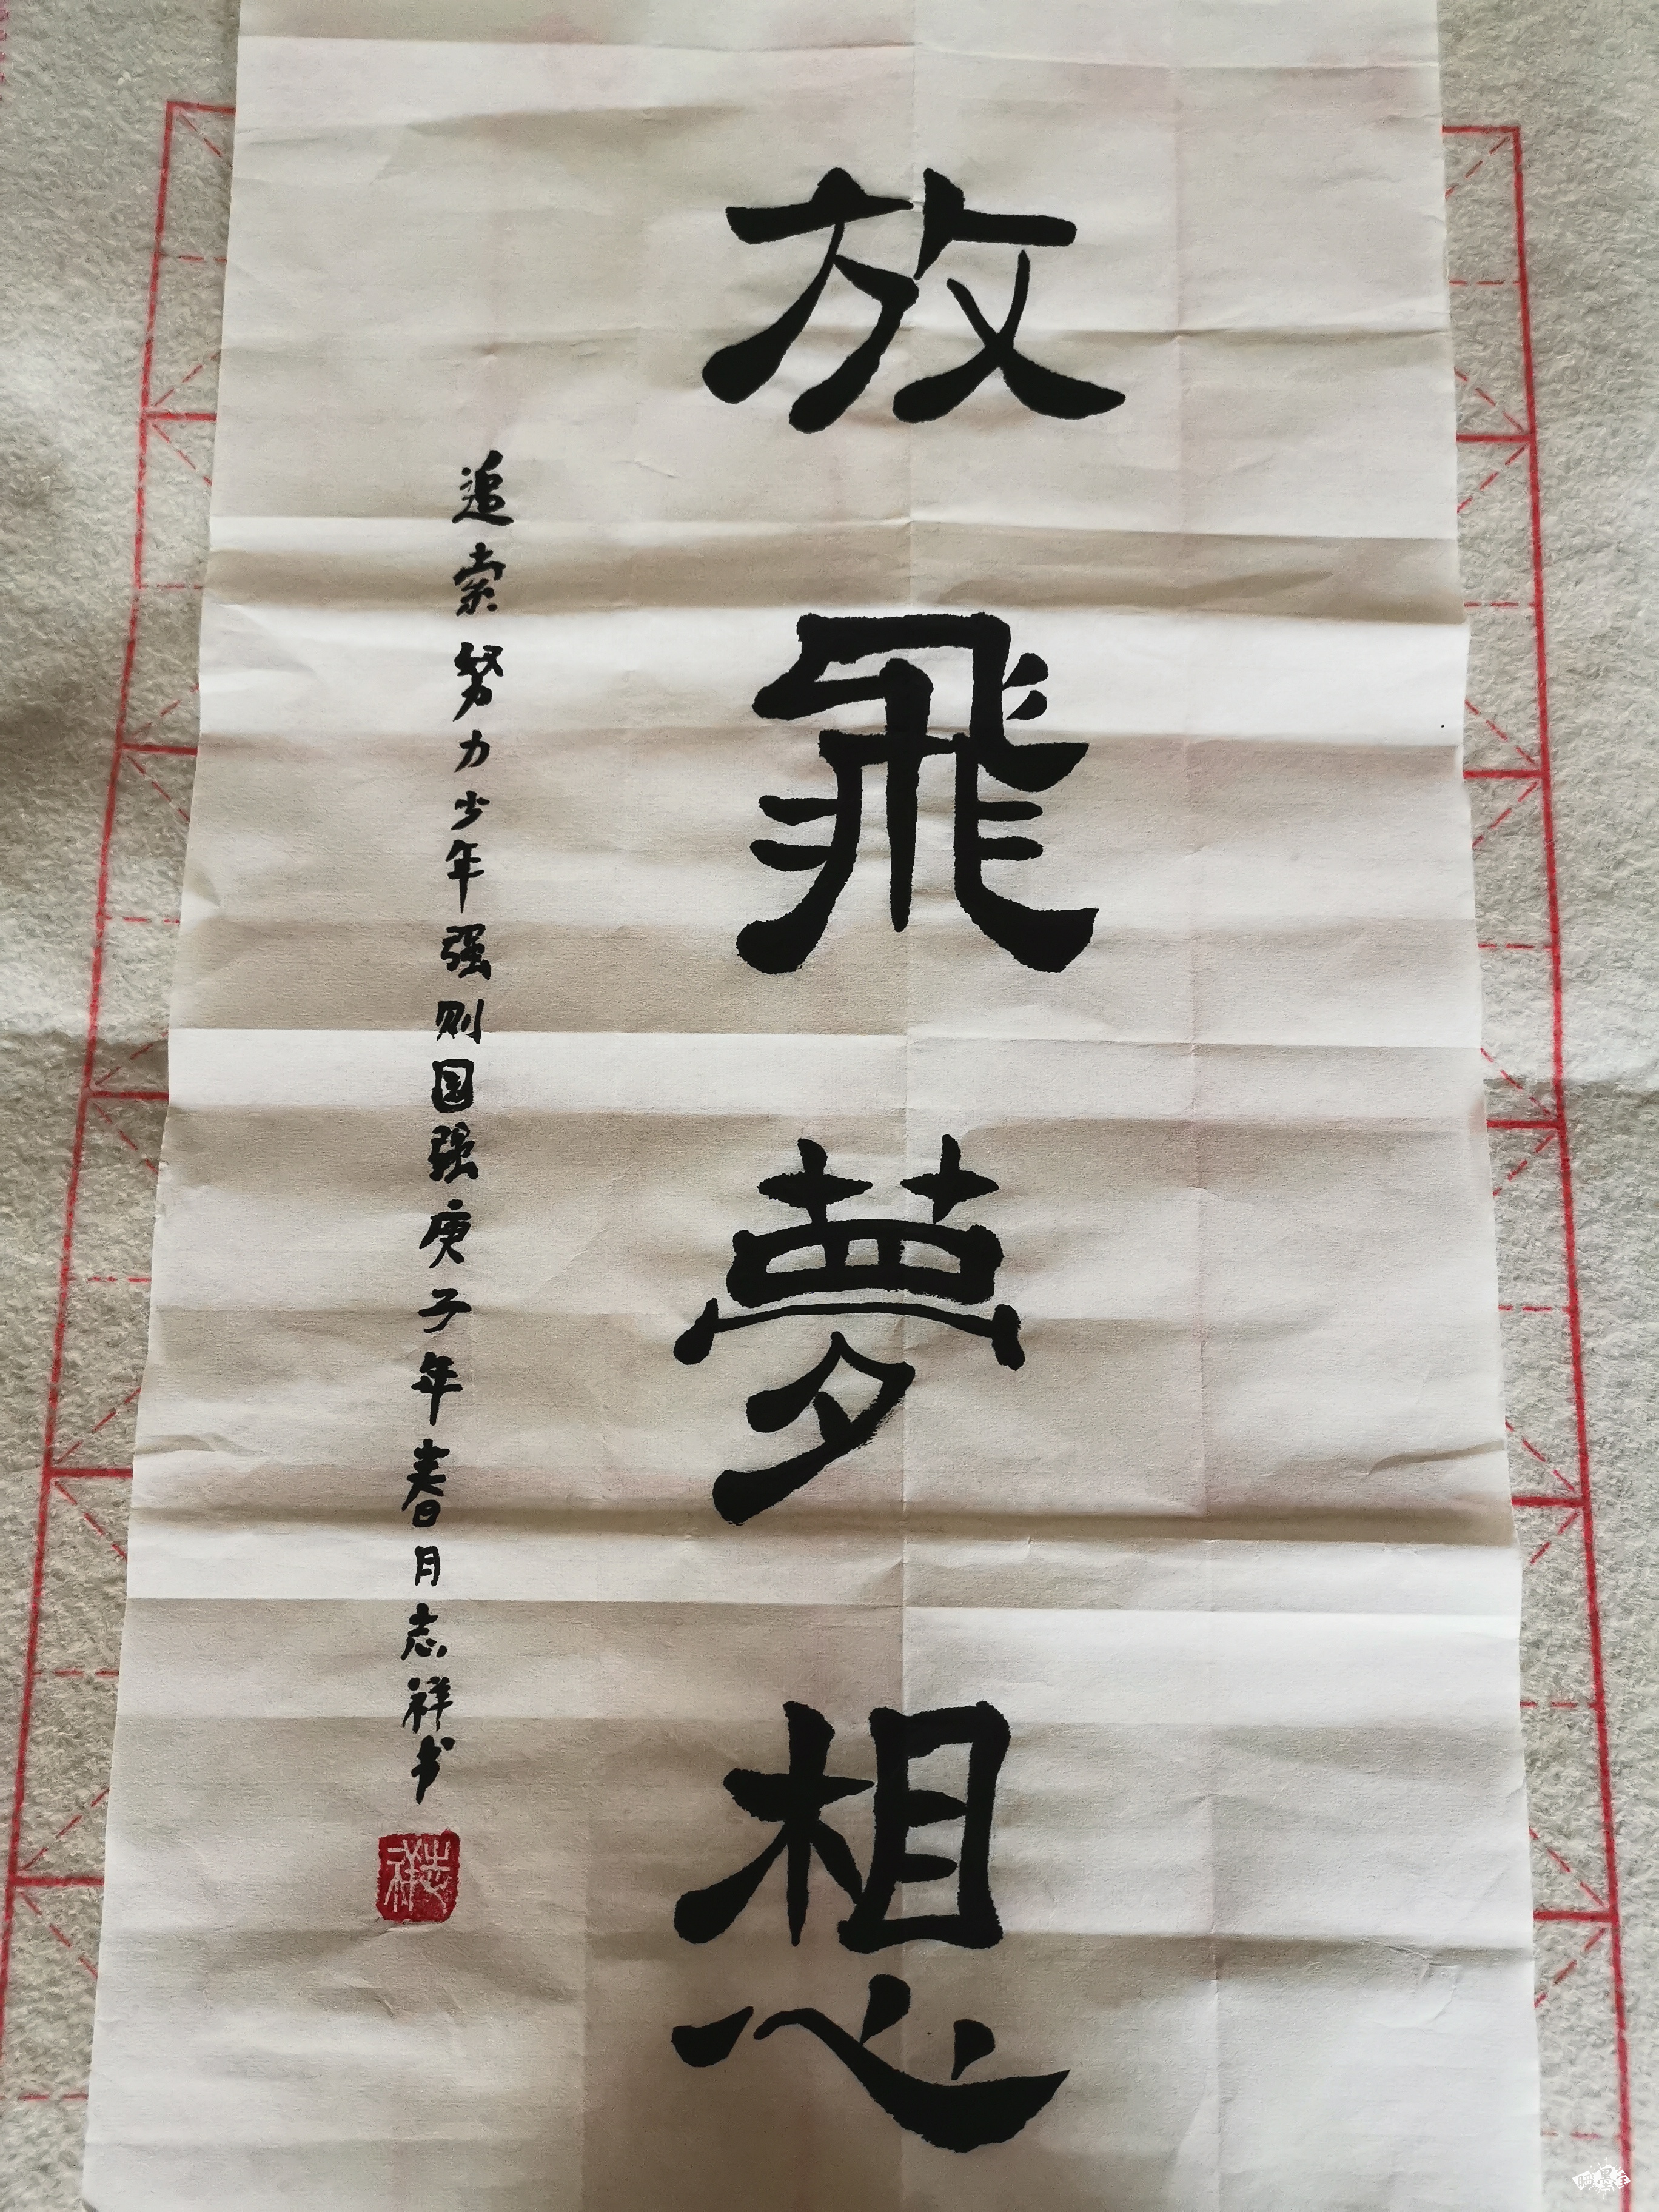 放飛夢想
追索努力少年强则国强庚子年春月志祥书
志祥